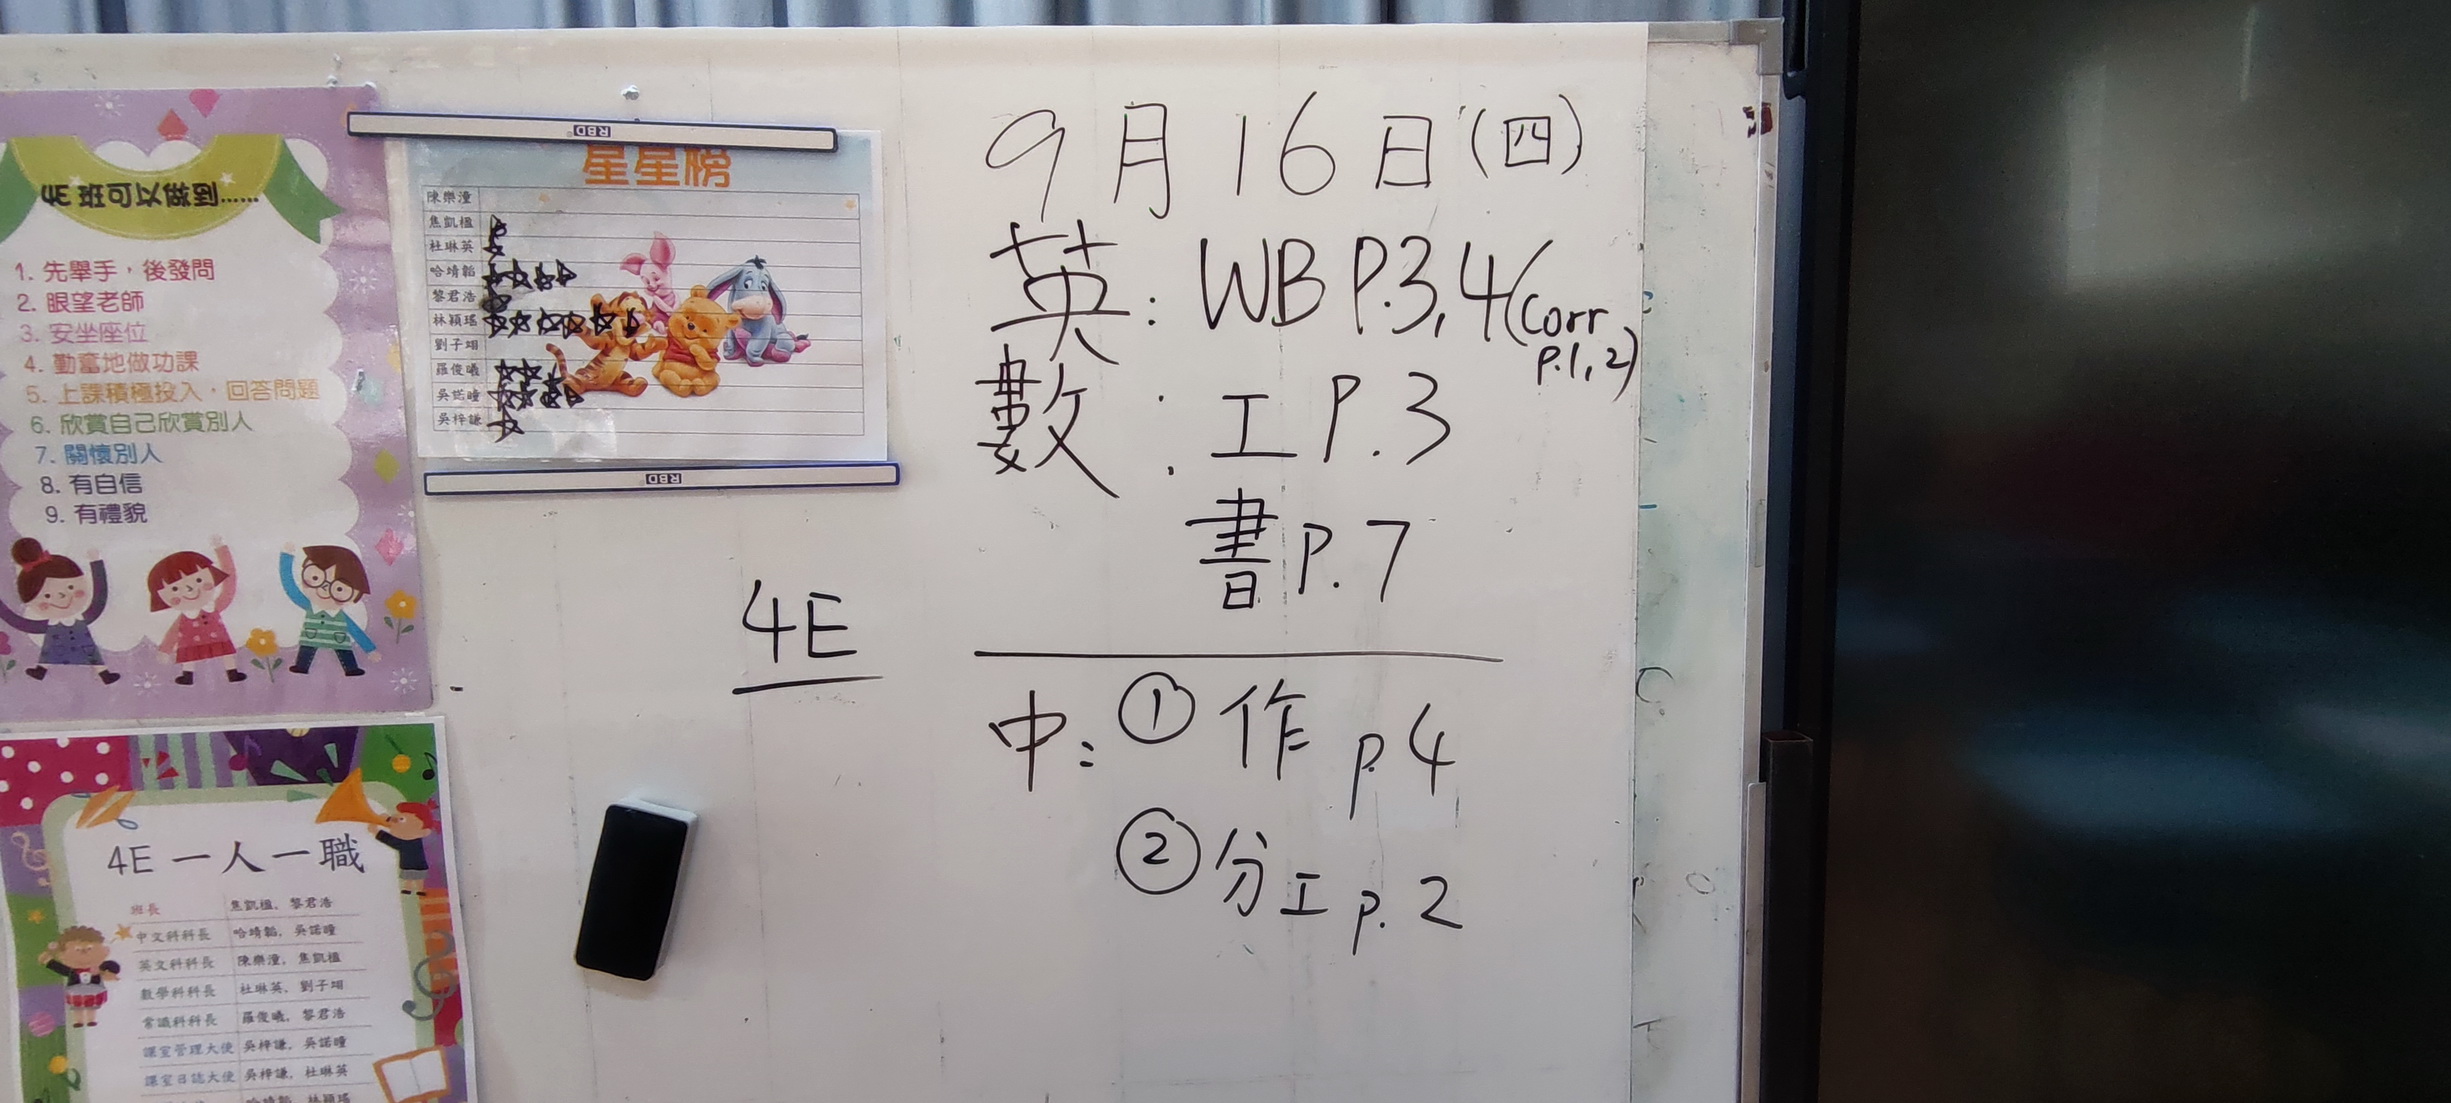 4E 班可以做到......
1. 先舉手，後發問
2. 眼望老師
3. 安坐座位
4. 勤奮地做功課
5. 上課積極投入，回答問題
6. 欣賞自己欣賞別人
7. 關懷別人
8. 有自信
9. 有禮貌
RBD
星星榜
陳樂潼
焦凱楹
杜琳英
哈靖韜
黎君浩
林穎瑤
劉子翊
羅俊曦
吳諾曈
吳梓謙
RBD
4E 一人一職
班長 焦凱楹, 黎君浩
中文科科長 哈靖韜, 吳諾曈
英文科科長 陳樂潼, 焦凱楹
數學科科長 杜琳英, 劉子翊
常識科科長 羅俊曦, 黎君浩
課室管理大使 吳梓謙, 吳諾曈
課室日誌大使 吳梓謙, 杜琳英
哈靖韜, 林穎瑤
4E
9月16日(四)
英: WB P.3,4(Corr
p.1,2)
數: 工 P.3
書 P.7
中: ① 作 p.4
② 分工 p.2